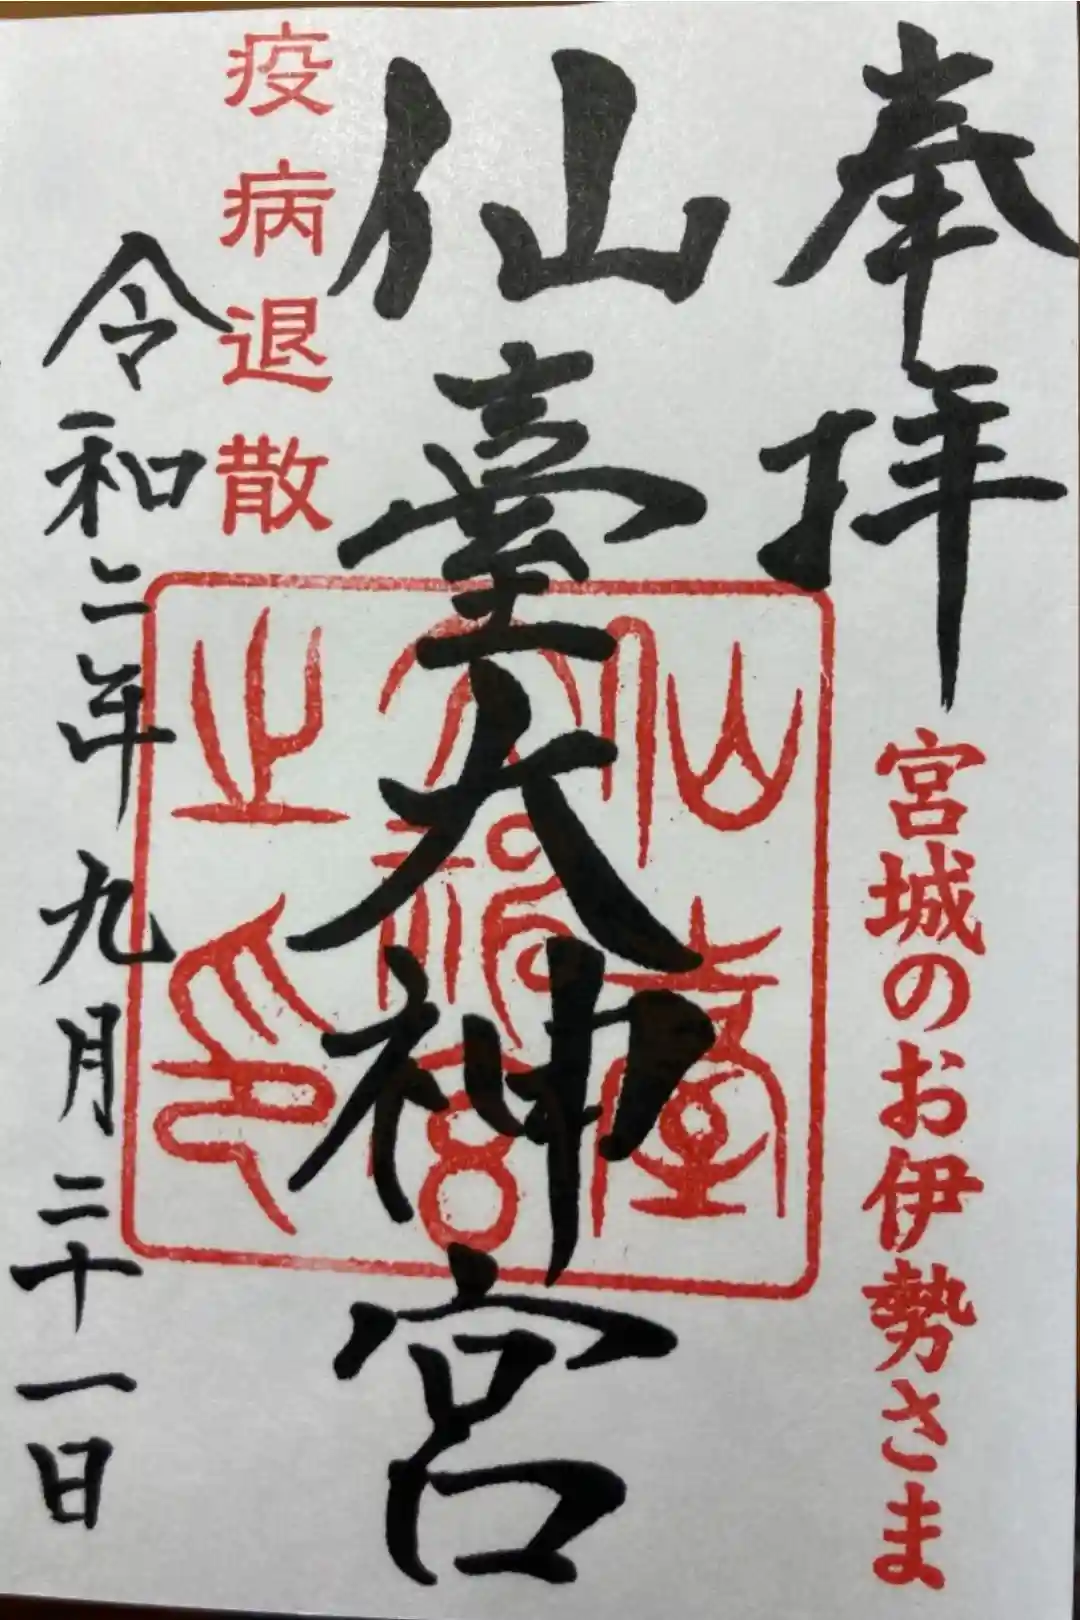 奉拝
宮城のお伊勢さま
仙臺大神宮
疫病退散
令和二年九月二十一日